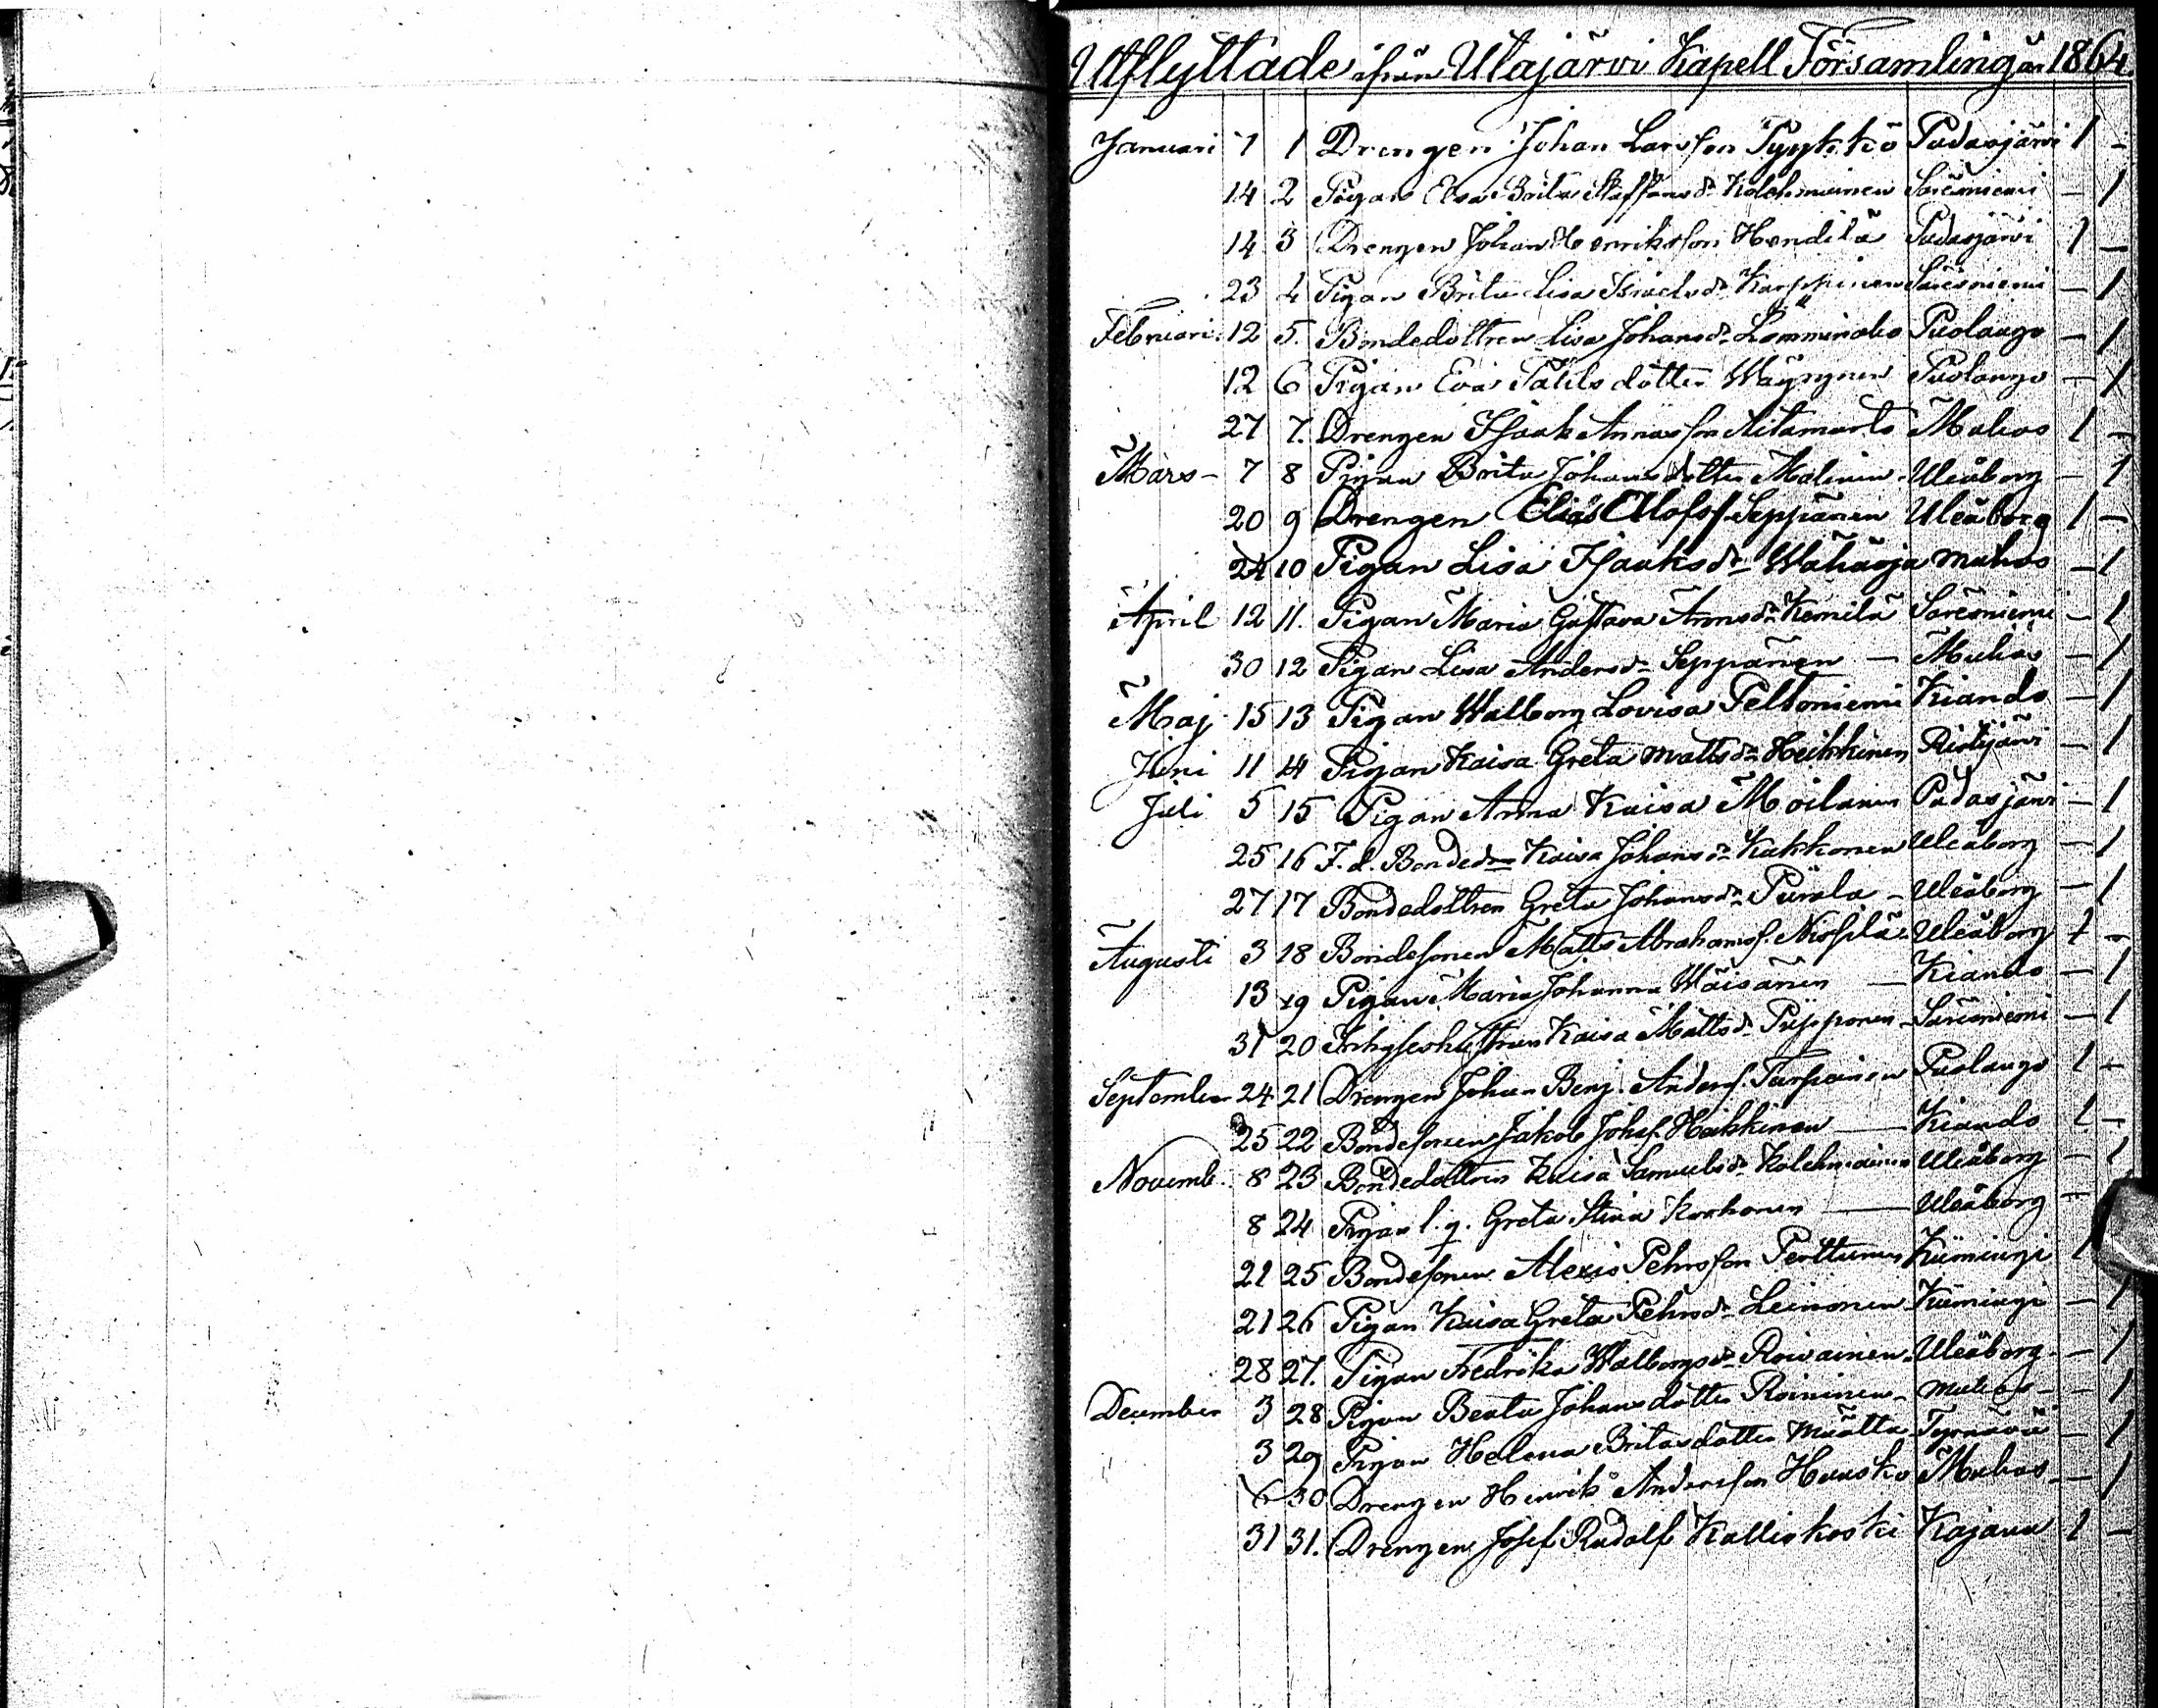 Utflyttade ifrån Utajärvi Kapell Församling år 1864.
Januari 7 1 Drengen Johan Larsson Pyykkö Pudasjärvi 1 -
14 2 Pigan Elsa Brita Staffansdr Kolehmainen Säresniemi - 1
14 3 Drengen Johan Henriksson Hendilä Pudasjärvi 1 -
23 4 Pigan Brita Lisa Israelsdr Karppinen Säresniemi - 1
Februari 12 5. Bondedottren Lisa Johansdr Lomminaho Puolango - 1
12 6 Pigan Eva Påhls dotter Wäyrynen Puolango - 1
27 7. Drengen Isaak Annasson Aitamurto Muhos 1 -
Mars - 7 8 Pigan Brita Johansdotter Malinen Uleåborg - 1
20 9 Drengen Elias Olofss. Seppänen Uleåborg 1 -
24 10 Pigan Lisa Isaaksdr Wähäoja Muhos - 1
April 12 11. Pigan Maria Gustava Aronsdr Kemilä Säresniemi - 1
30 12 Pigan Lisa Andersdr Seppänen - Muhos - 1
Maj 15 13 Pigan Walborg Lovisa Peltoniemi Kiando - 1
Juni 11 14 Pigan Kaisa Greta Mattsdr Heikkinen Ristijärvi - 1
Juli 5 15 Pigan Anna Kaisa Moilanen Pudasjärvi - 1
25 16 F. d. Bonded Kaisa Johansdr Kukkonen Uleåborg - 1
27 17 Bondedottren Greta Johansdr Piirola - Uleåborg - 1
Augusti 3 18 Bondesonen Matts Abrahamss. Nissilä Uleåborg 1 -
13 19 Pigan Maria Johanna Wäisänen - Kiando - 1
31 20 Kaisa Mattsdr Pipponen - Säresniemi - 1
September 24 21 Drengen Johan Benj. Anderss. Turpeinen Puolango 1 -
25 22 Bondesonen Jakob Johss. Heikkinen - Kiando 1 -
Novemb. 8 23 Bondedottren Kaisa Samuelsdr Kolehmainen Uleåborg - 1
8 24 Pigan l. q. Greta Stina Korhonen - Uleåborg -
21 25 Bondesonen Alexis Pehrsson Perttunen Kiimingi 1
21 26 Pigan Kaisa Greta Pehrsdr Leinonen Kiimingi - 1
28 27. Pigan Fredrika Walborgsdr Roivainen - Uleåborg - - 1
December 3 28 Pigan Beata Johansdotter Roininen - Muhos - - 1
3 29 Pigan Helena Britasdotter Määttä Tyrnävä - 1
6 30 Drengen Henrik Andersson Hausko Muhos - - 1
31 31. Drengen Josef Rudolf Kalliokoski Kajana 1 -